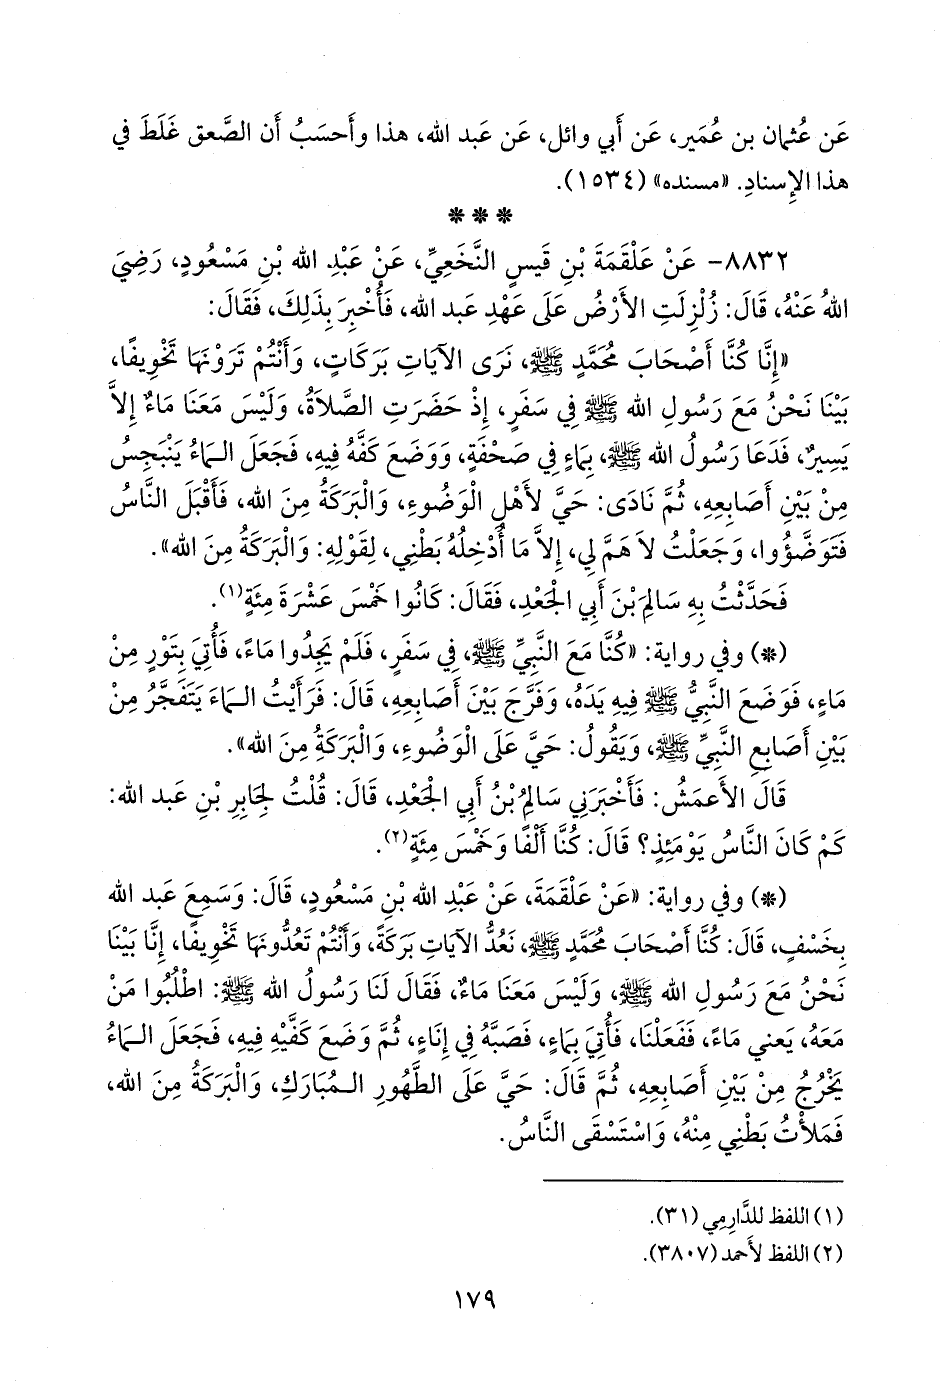 عَن عُثمان بن عُمَير، عَن أَبي وائل، عَن عَبد الله، هذا وأَحسَبُ أَن الصَّعق غَلَطَ في
هذا الإِسنادِ. «مسنده» (١٥٣٤).
***
٨٨٣٢- عَنْ عَلْقَمَةَ بْنِ قَيسٍ النَّخَعِيِّ، عَنْ عَبْدِ الله بْنِ مَسْعُودٍ، رَضِيَ
اللهُ عَنْهُ، قَالَ: زُلْزِلَتِ الأَرْضُ عَلَى عَهْدِ عَبد الله، فَأُخْبِرَ بِذَلِكَ، فَقَالَ:
«إِنَّا كُنَّا أَصْحَابَ مُحَمَّدٍ ﷺ، نَرَى الآيَاتِ بَرَكَاتٍ، وَأَنْتُمْ تَرَوْنَهَا تَخْوِيفًا،
بَيْنَا نَحْنُ مَعَ رَسُولِ الله ﷺ فِي سَفَرٍ، إِذْ حَضَرَتِ الصَّلَاةُ، وَلَيْسَ مَعَنَا مَاءٌ إِلاَّ
يَسِيرٌ، فَدَعَا رَسُولُ الله ﷺ، بِمَاءٍ فِي صَحْفَةٍ، وَوَضَعَ كَفَّهُ فِيهِ، فَجَعَلَ الـمَاءُ يَنْبَجِسُ
مِنْ بَيْنِ أَصَابِعِهِ، ثُمَّ نَادَى: حَيَّ لأَهْلِ الْوَضُوءِ، وَالْبَرَكَةُ مِنَ الله، فَأَقْبَلَ النَّاسُ
فَتَوَضَّؤُوا، وَجَعَلْتُ لاَ هَمَّ لِي، إِلاَّ مَا أُدْخِلُهُ بَطْنِي، لِقَوْلِهِ: وَالْبَرَكَةُ مِنَ الله».
فَحَدَّثْتُ بِهِ سَالِمَ بْنَ أَبِي الجَعْدِ، فَقَالَ: كَانُوا خَمْسَ عَشْرَةَ مِئَةٍ(١).
(*) وفي رواية: «كُنَّا مَعَ النَّبِيِّ ﷺ، فِي سَفَرٍ، فَلَمْ يَجِدُوا مَاءً، فَأُتِيَ بِتَوْرٍ مِنْ
مَاءٍ، فَوَضَعَ النَّبِيُّ ﷺ فِيهِ يَدَهُ، وَفَرَّجَ بَيْنَ أَصَابِعِهِ، قَالَ: فَرَأَيْتُ الـمَاءَ يَتَفَجَّرُ مِنْ
بَيْنِ أَصَابِعِ النَّبِيِّ ﷺ، وَيَقُولُ: حَيَّ عَلَى الْوَضُوءِ، وَالْبَرَكَةُ مِنَ الله».
قَالَ الأَعمَشُ: فَأَخْبَرَنِي سَالِمُ بْنُ أَبِي الجَعْدِ، قَالَ: قُلْتُ لِجَابِرِ بْنِ عَبد الله:
كَمْ كَانَ النَّاسُ يَوْمَئِذٍ؟ قَالَ: كُنَّا أَلْفًا وَخَمْسَ مِئَةٍ(٢).
(*) وفي رواية: «عَنْ عَلْقَمَةَ، عَنْ عَبْدِ الله بْنِ مَسْعُودٍ، قَالَ: وَسَمِعَ عَبد الله
بِخَسْفٍ، قَالَ: كُنَّا أَصْحَابَ مُحَمَّدٍ ﷺ، نَعُدُّ الآيَاتِ بَرَكَةً، وَأَنْتُمْ تَعُدُّونَهَا تَخْوِيفًا، إِنَّا بَيْنَا
نَحْنُ مَعَ رَسُولِ الله ﷺ، وَلَيْسَ مَعَنَا مَاءٌ، فَقَالَ لَنَا رَسُولُ الله ﷺ: اطْلُبُوا مَنْ
مَعَهُ، يَعنِي مَاءً، فَفَعَلْنَا، فَأُتِيَ بِمَاءٍ، فَصَبَّهُ فِي إِنَاءٍ، ثُمَّ وَضَعَ كَفَّيْهِ فِيهِ، فَجَعَلَ الـمَاءُ
يَخْرُجُ مِنْ بَيْنِ أَصَابِعِهِ، ثُمَّ قَالَ: حَيَّ عَلَى الطَّهُورِ الـمُبَارَكِ، وَالْبَرَكَةُ مِنَ الله،
فَمَلأْتُ بَطْنِي مِنْهُ، وَاسْتَسْقَى النَّاسُ.
(١) اللفظ للدَّارِمِي (٣١).
(٢) اللفظ لأَحمد (٣٨٠٧).
١٧٩